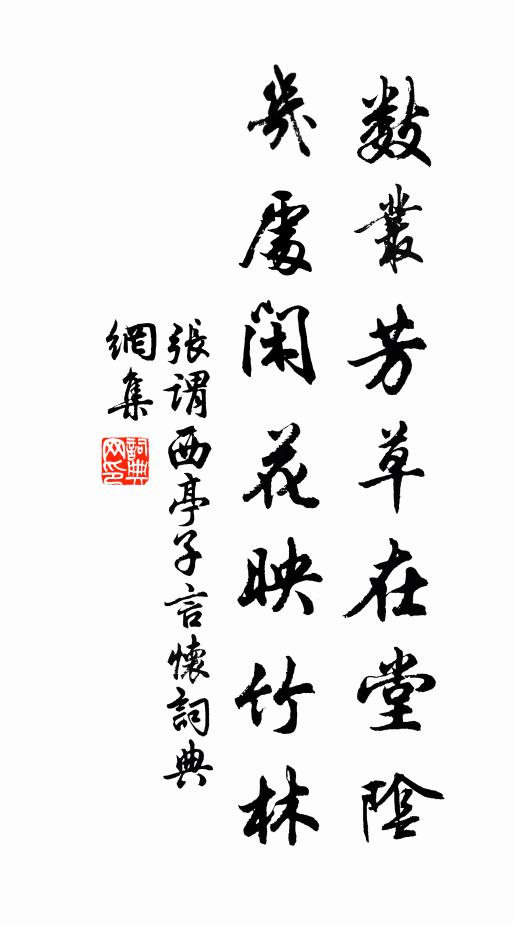 數叢芳草在堂陰
幾處閑花映竹林
張謂西亭子言懷詞典
網集
詞典
網印